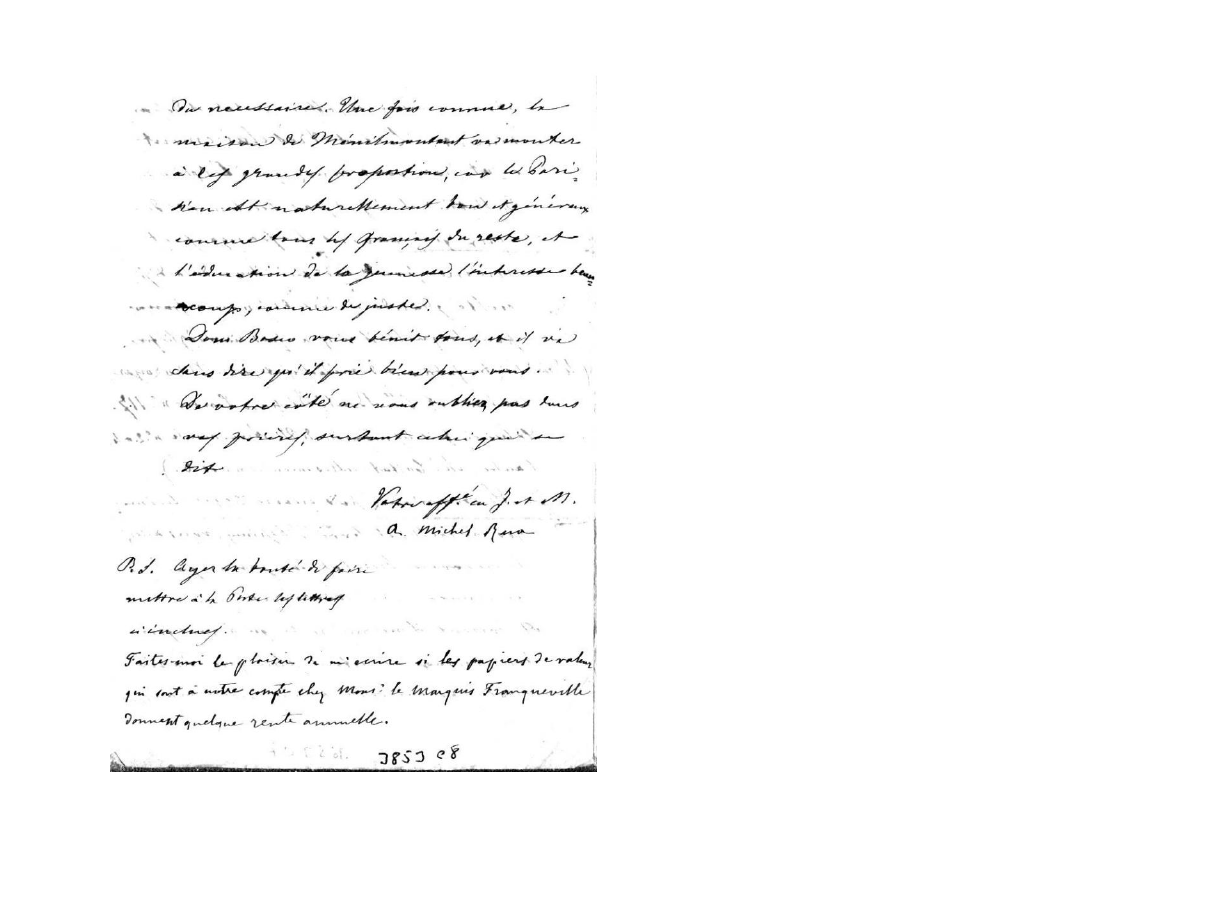 du necessaire. Une fois connue, la
maison de Ménilmontant va monter
à les grandes proportion, car le Pari=
sien est naturellement bon et généreux
comme tous les français du reste, et
l'éducation de la jeunesse l'interesse beau=
coup, comme de juste.
Dom Bosco vous bénit tous, et il va
sans dire qu'il prie bien pour vous.
De votre côté ne nous oubliez pas dans
vos prieres, surtout celui qui se
dit
Votre aff.é en J. et M.
a. Michel Rua
P. S. Ayez la bonté de faire
mettre à la Poste les lettres
ci incluses.
Faites-moi le plaisir de m'ecrire si les papiers de valeur
qui sont à notre compte chez Mons: le Marquis Franqueville
donnent quelque rente annuelle.
3853 C8